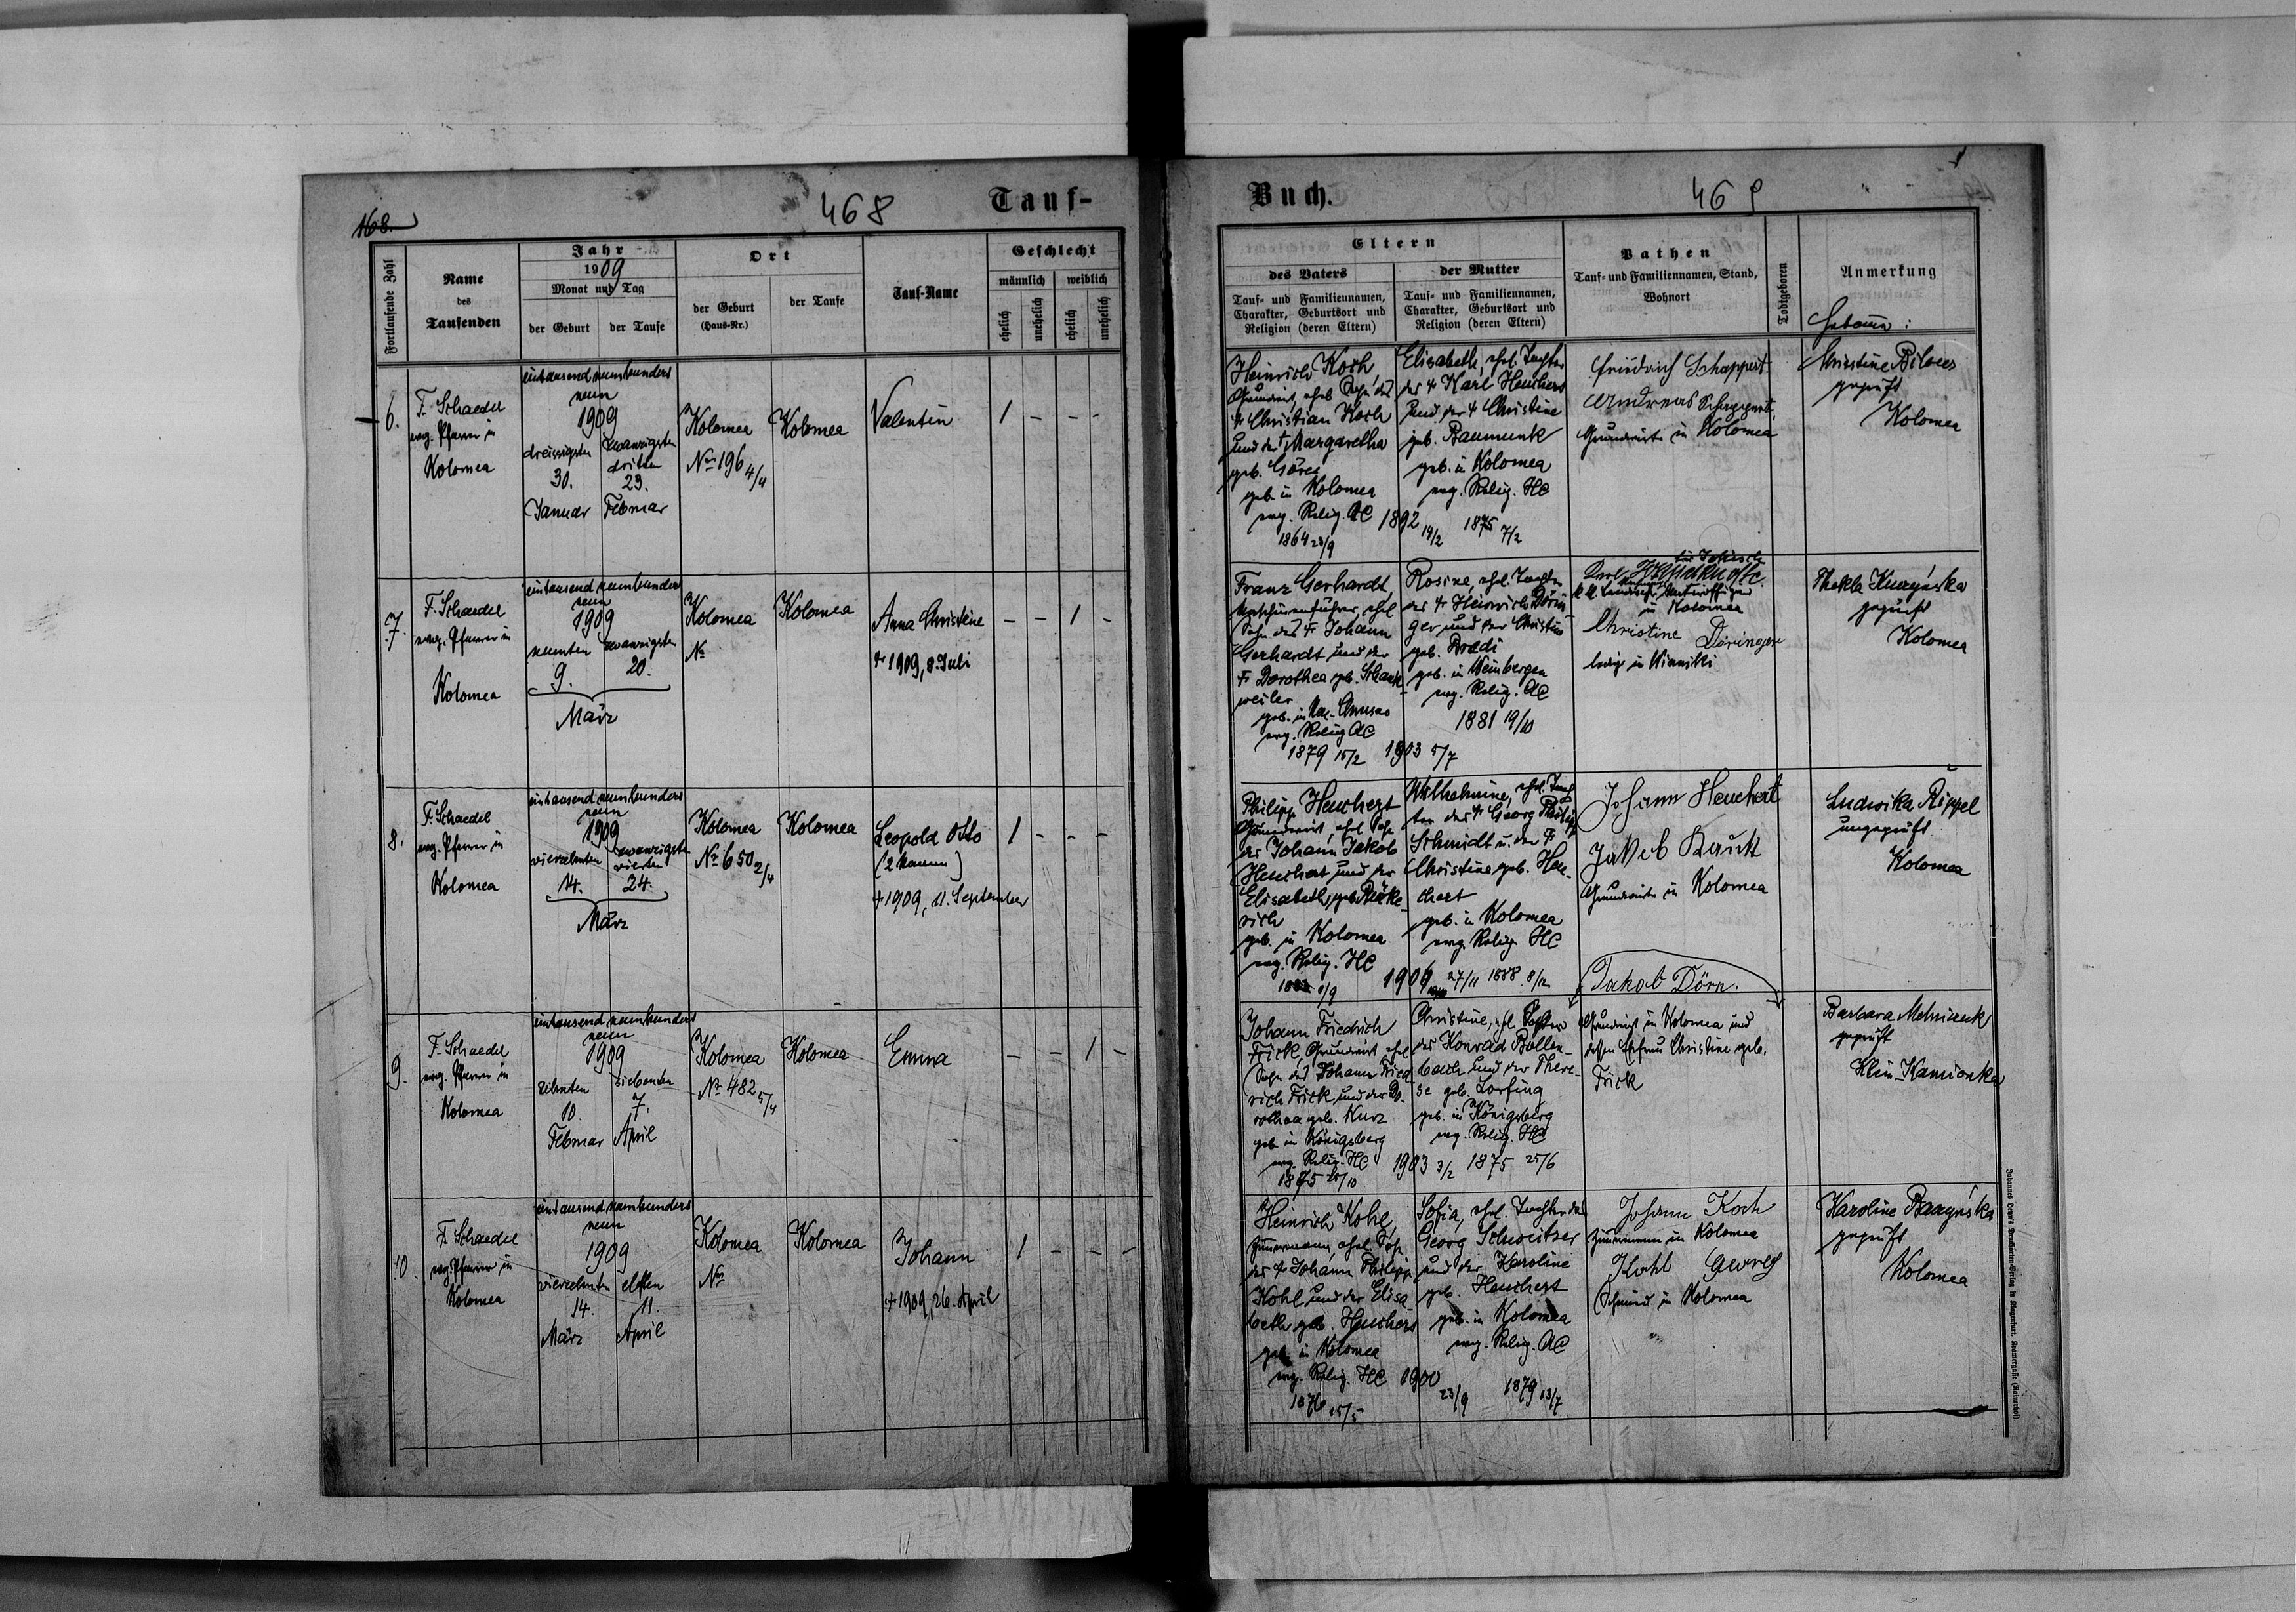 168.
468
Tauf-
Fortlaufende Zahl
Name
des
Taufenden
Jahr
1909
Monat und Tag
der Geburt
der Taufe
Ort
der Geburt
(Haus-Nr.)
der Taufe
Tauf-Name
Geschlecht
männlich
weiblich
ehelich
unehelich
ehelich
unehelich
6.
F. Schaedel
evg. Pfarrer in
Kolomea
eintausend neunhundert
neun
1909
dreissigsten
30.
Januar
zwanzigsten
dritten
23.
Februar
Kolomea
No 196 4/4
Kolomea
Valentin
1 - - -
7.
F. Schaedel
evg. Pfarrer in
Kolomea
eintausend neunhundert
neun
1909
neunten
9.
zwanzigsten
20.
März
Kolomea
No
Kolomea
Anna Christine
† 1909, 8. Juli
- - 1 -
8.
F. Schaedel
evg. Pfarrer in
Kolomea
eintausend neunhundert
neun
1909
vierzehnten
14.
zwanzigsten
vierten
24.
März
Kolomea
No 650 2/4
Kolomea
Leopold Otto
(2 Namen)
† 1909, 11. September
1 - - -
9.
F. Schaedel
evg. Pfarrer in
Kolomea
eintausend neunhundert
neun
1909
zehnten
10.
Februar
siebenten
7.
April
Kolomea
No 482 5/4
Kolomea
Emma
- - 1 -
10.
F. Schaedel
evg. Pfarrer in
Kolomea
eintausend neunhundert
neun
1909
vierzehnten
14.
März
elften
11.
April
Kolomea
No
Kolomea
Johann
† 1909, 26. April
1 - - -
Buch.
469
Eltern
des Vaters
Tauf- und Familiennamen,
Charakter, Geburtsort und
Religion (deren Eltern)
der Mutter
Tauf- und Familiennamen,
Charakter, Geburtsort und
Religion (deren Eltern)
Pathen
Tauf- und Familiennamen, Stand,
Wohnort
Todtgeboren
Anmerkung
Hebamme:
Heinrich Koch
Grundwirt, ehel. Sohn des
† Christian Koch
und der † Margaretha
geb. Göres
geb. in Kolomea
evg. Relig. AC
1864 23/9
1892 14/2
Elisabeth, ehel. Tochter
des † Karl Heuchert
und der † Christine
geb. Baumunk
geb. in Kolomea
evg. Relig. HC
1875 7/2
Friedrich Schappert
Andreas Schappert
Grundwirte in Kolomea
geprüft
Kolomea
Franz Gerhardt,
Maschinenführer, ehel.
Sohn des † Johann
Gerhardt und der
† Dorothea geb. Schank-
weiler
evg. Relig. AC
1879 15/2
1903 5/7
Rosine, ehel. Tochter
des † Heinrich Dörin-
ger und der Christine
geb. Bredi
geb. in Weinbergen
evg. Relig. AC
1881 19/10
Karl
in Kolomea
Christine Döringer
ledig in Winniki
Thekla
geprüft
Kolomea
Philipp Heuchert
Grundwirt, ehel. Sohn
des Johann Jakob
Heuchert und der
Elisabeth, geb.
geb. in Kolomea
evg. Relig. HC
1906 27/11
Wilhelmine, ehel. Toch-
ter des † Georg Philipp
Schmidt u. der †
Christine geb. Heu-
chert
geb. in Kolomea
evg. Relig. HC
1888 8/12
Johann Heuchert
Jakob Kauck
Grundwirte in Kolomea
Ludwika Rippel
ungeprüft
Kolomea
Johann Friedrich
Frick, Grundwirt, ehel.
Sohn des Johann Fried-
rich Frick und der Do-
rothea geb. Kurz
geb. in Königsberg
evg. Relig. HC
1875 25/10
1903 3/2
Christine, ehel. Tochter
des Konrad Bollen-
bach und der There-
se geb. Lorfing
geb. in Königsberg
evg. Relig. HC
1875 25/6
Jakob Dörn.
Grundwirt in Kolomea und
dessen Ehefrau Christine geb.
Frick
Barbara
geprüft
Klein-Kamionka
Heinrich Kohl,
Zimmermann, ehel. Sohn
des † Johann Philipp
Kohl und der Elisa-
beth geb. Heuchert
geb. in Kolomea
evg. Relig. HC
1876
1900 23/9
Sofia, ehel. Tochter des
Georg Schweitzer
und der Karoline
geb. Heuchert
geb. in Kolomea
evg. Relig. AC
1879 13/7
Johann Koch
Zimmermann in Kolomea
Kohl Georg
Schmied in Kolomea
Karoline
geprüft
Kolomea